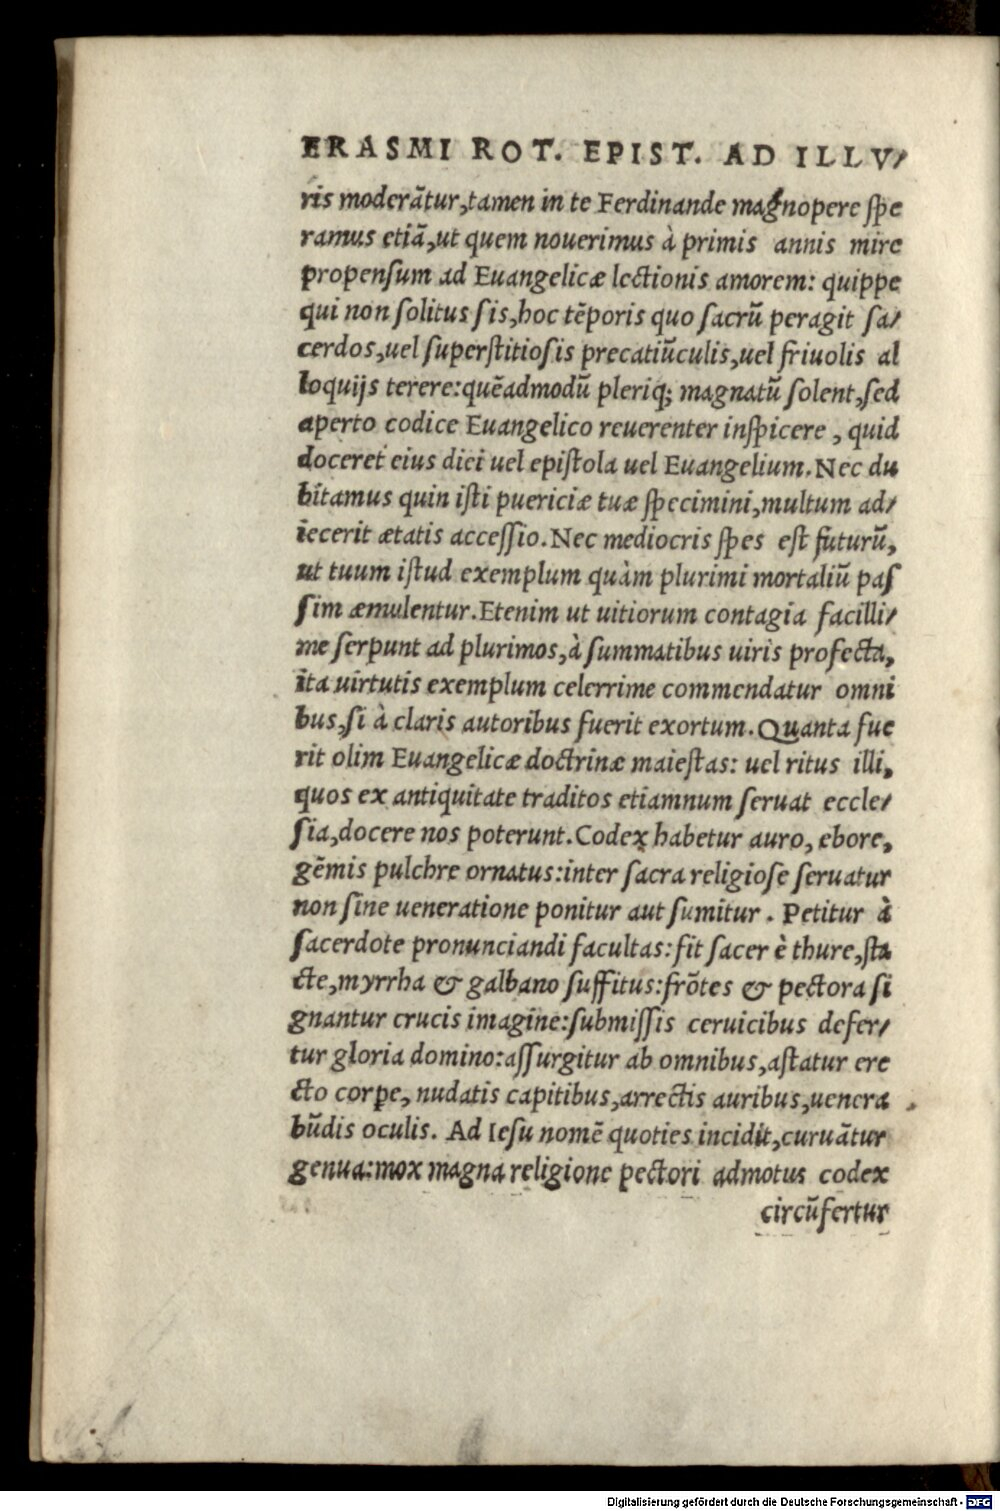 ERASMI ROT. EPIST. AD ILLV/
ris moderãtur,tamen in te Ferdinande magnopere spe
ramus etiã,ut quem nouerimus à primis annis mire
propensum ad Euangelicæ lectionis amorem: quippe
qui non solitus sis,hoc tẽporis quo sacrũ peragit sa/
cerdos,uel superstitiosis precatiũculis,uel friuolis al
loquijs terere:quẽadmodũ pleriq; magnatũ solent,sed
aperto codice Euangelico reuerenter inspicere , quid
doceret eius diei uel epistola uel Euangelium.Nec du
bitamus quin isti puericiæ tuæ specimini,multum ad/
iecerit ætatis accessio.Nec mediocris spes est futurũ,
ut tuum istud exemplum quàm plurimi mortaliũ pas
sim æmulentur.Etenim ut uitiorum contagia facilli/
me serpunt ad plurimos,à summatibus uiris profecta,
ita uirtutis exemplum celerrime commendatur omni
bus,si à claris autoribus fuerit exortum.Quanta fue
rit olim Euangelicæ doctrinæ maiestas: uel ritus illi,
quos ex antiquitate traditos etiamnum seruat eccle/
sia,docere nos poterunt.Codex habetur auro, ebore,
gẽmis pulchre ornatus:inter sacra religiose seruatur
non sine ueneratione ponitur aut sumitur . Petitur à
sacerdote pronunciandi facultas:fit sacer è thure,sta
cte,myrrha & galbano suffitus:frõtes & pectora si
gnantur crucis imagine:submissis ceruicibus defer/
tur gloria domino:assurgitur ab omnibus,astatur ere
cto corpe, nudatis capitibus,arrectis auribus,uenera
bũdis oculis. Ad Iesu nomẽ quoties incidit,curuãtur
genua:mox magna religione pectori admotus codex
circũfertur
Digitalisierung gefördert durch die Deutsche Forschungsgemeinschaft - DFG